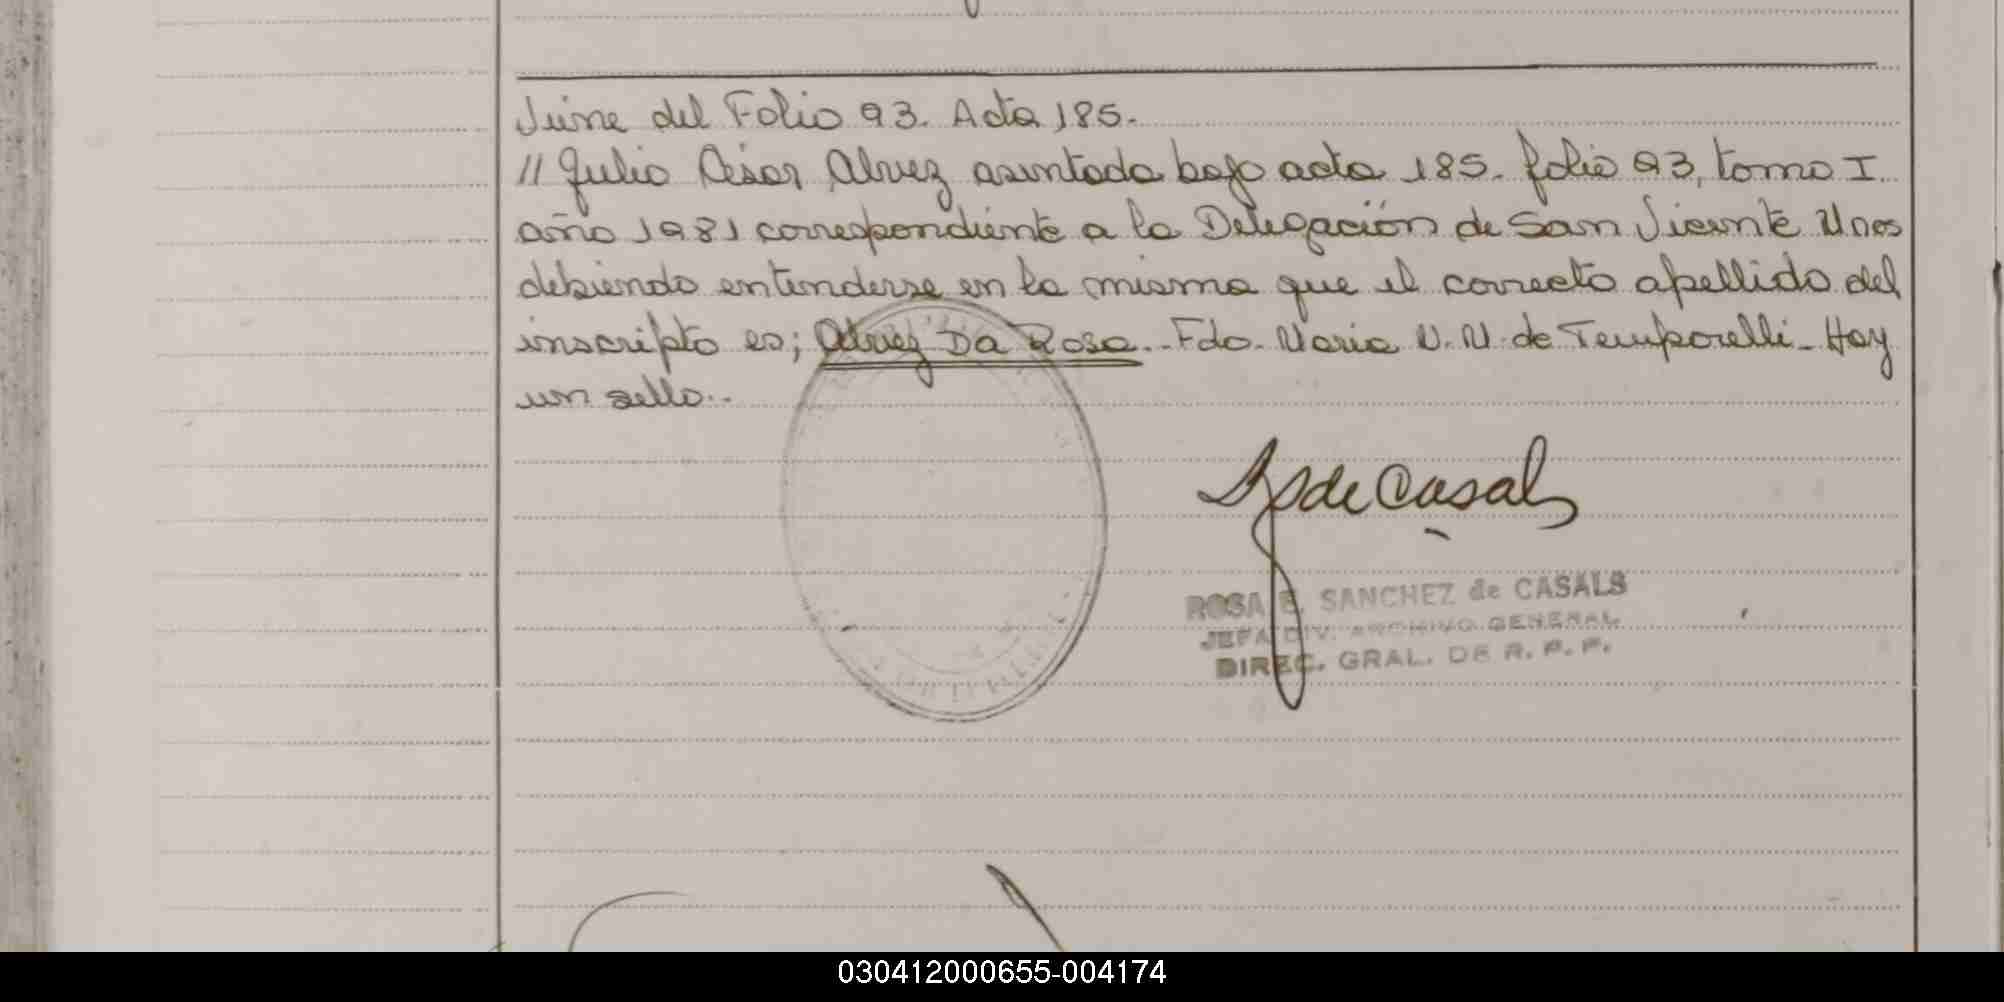 Viene del Folio 93. Acta 185.
// Julio César Alvez asentada bajo acta 185. folio 93, tomo I
año 1981 correspondiente a la Delegación de San Vicente Mnes
debiendo entenderse en la misma que el correcto apellido del
inscripto es; Alvez Da Rosa. Fdo. Maria V. V. de Temporelli - Hay
un sello..
de Casals
ROSA E. SANCHEZ de CASALS
JEFA DIV. ARCHIVO GENERAL
DIREC. GRAL. DE R. P. P.
030412000655-004174